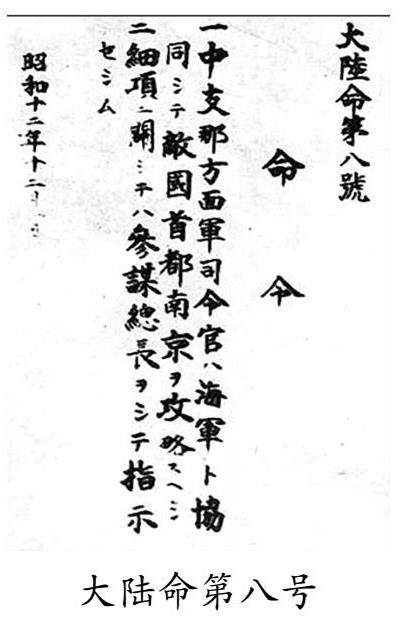 大陸命第八號
命令
一中支那方面軍司令官ハ海軍ト協
同シテ敵國首都南京ヲ攻略スヘシ
二細項ニ關シテハ參謀總長ヲシテ指示
セシム
昭和十二年十二
大陆命第八号